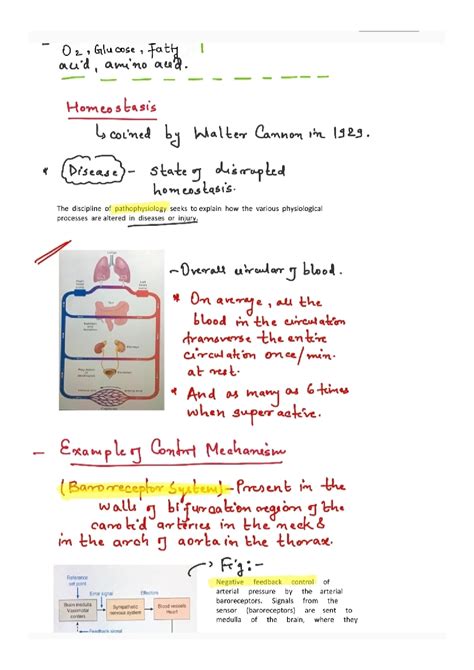 - O2, Glucose, Fatty
acid, amino acid.
Homeostasis
↳ coined by Walter Cannon in 1929.
* Disease - State of disrupted
homeostasis.
The discipline of pathophysiology seeks to explain how the various physiological
processes are altered in diseases or injury.
- Overall circular of blood.
* On average, all the
blood in the circulation
transverse the entire
circulation once/min.
at rest.
* And as many as 6 times
when super active.
- Example of Control Mechanism
(Baroreceptor System) - Present in the
walls of bifurcation region of the
carotid arteries in the neck &
in the arch of aorta in the thorax.
Fig:-
Negative feedback control of
arterial pressure by the arterial
baroreceptors. Signals from the
sensor (baroreceptors) are sent to
medulla of the brain, where they
Reference
set point
Error signal
Effectors
Brain medulla
Vasomotor
centers
Sympathetic
nervous system
Blood vessels
Heart
Feedback signal